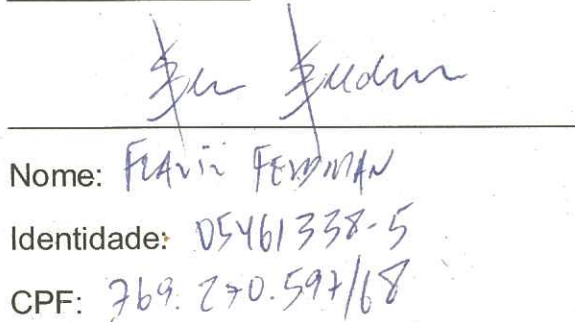 Nome: FLAVIO FELDMAN
Identidade: 05461338-5
CPF: 769.270.597/68